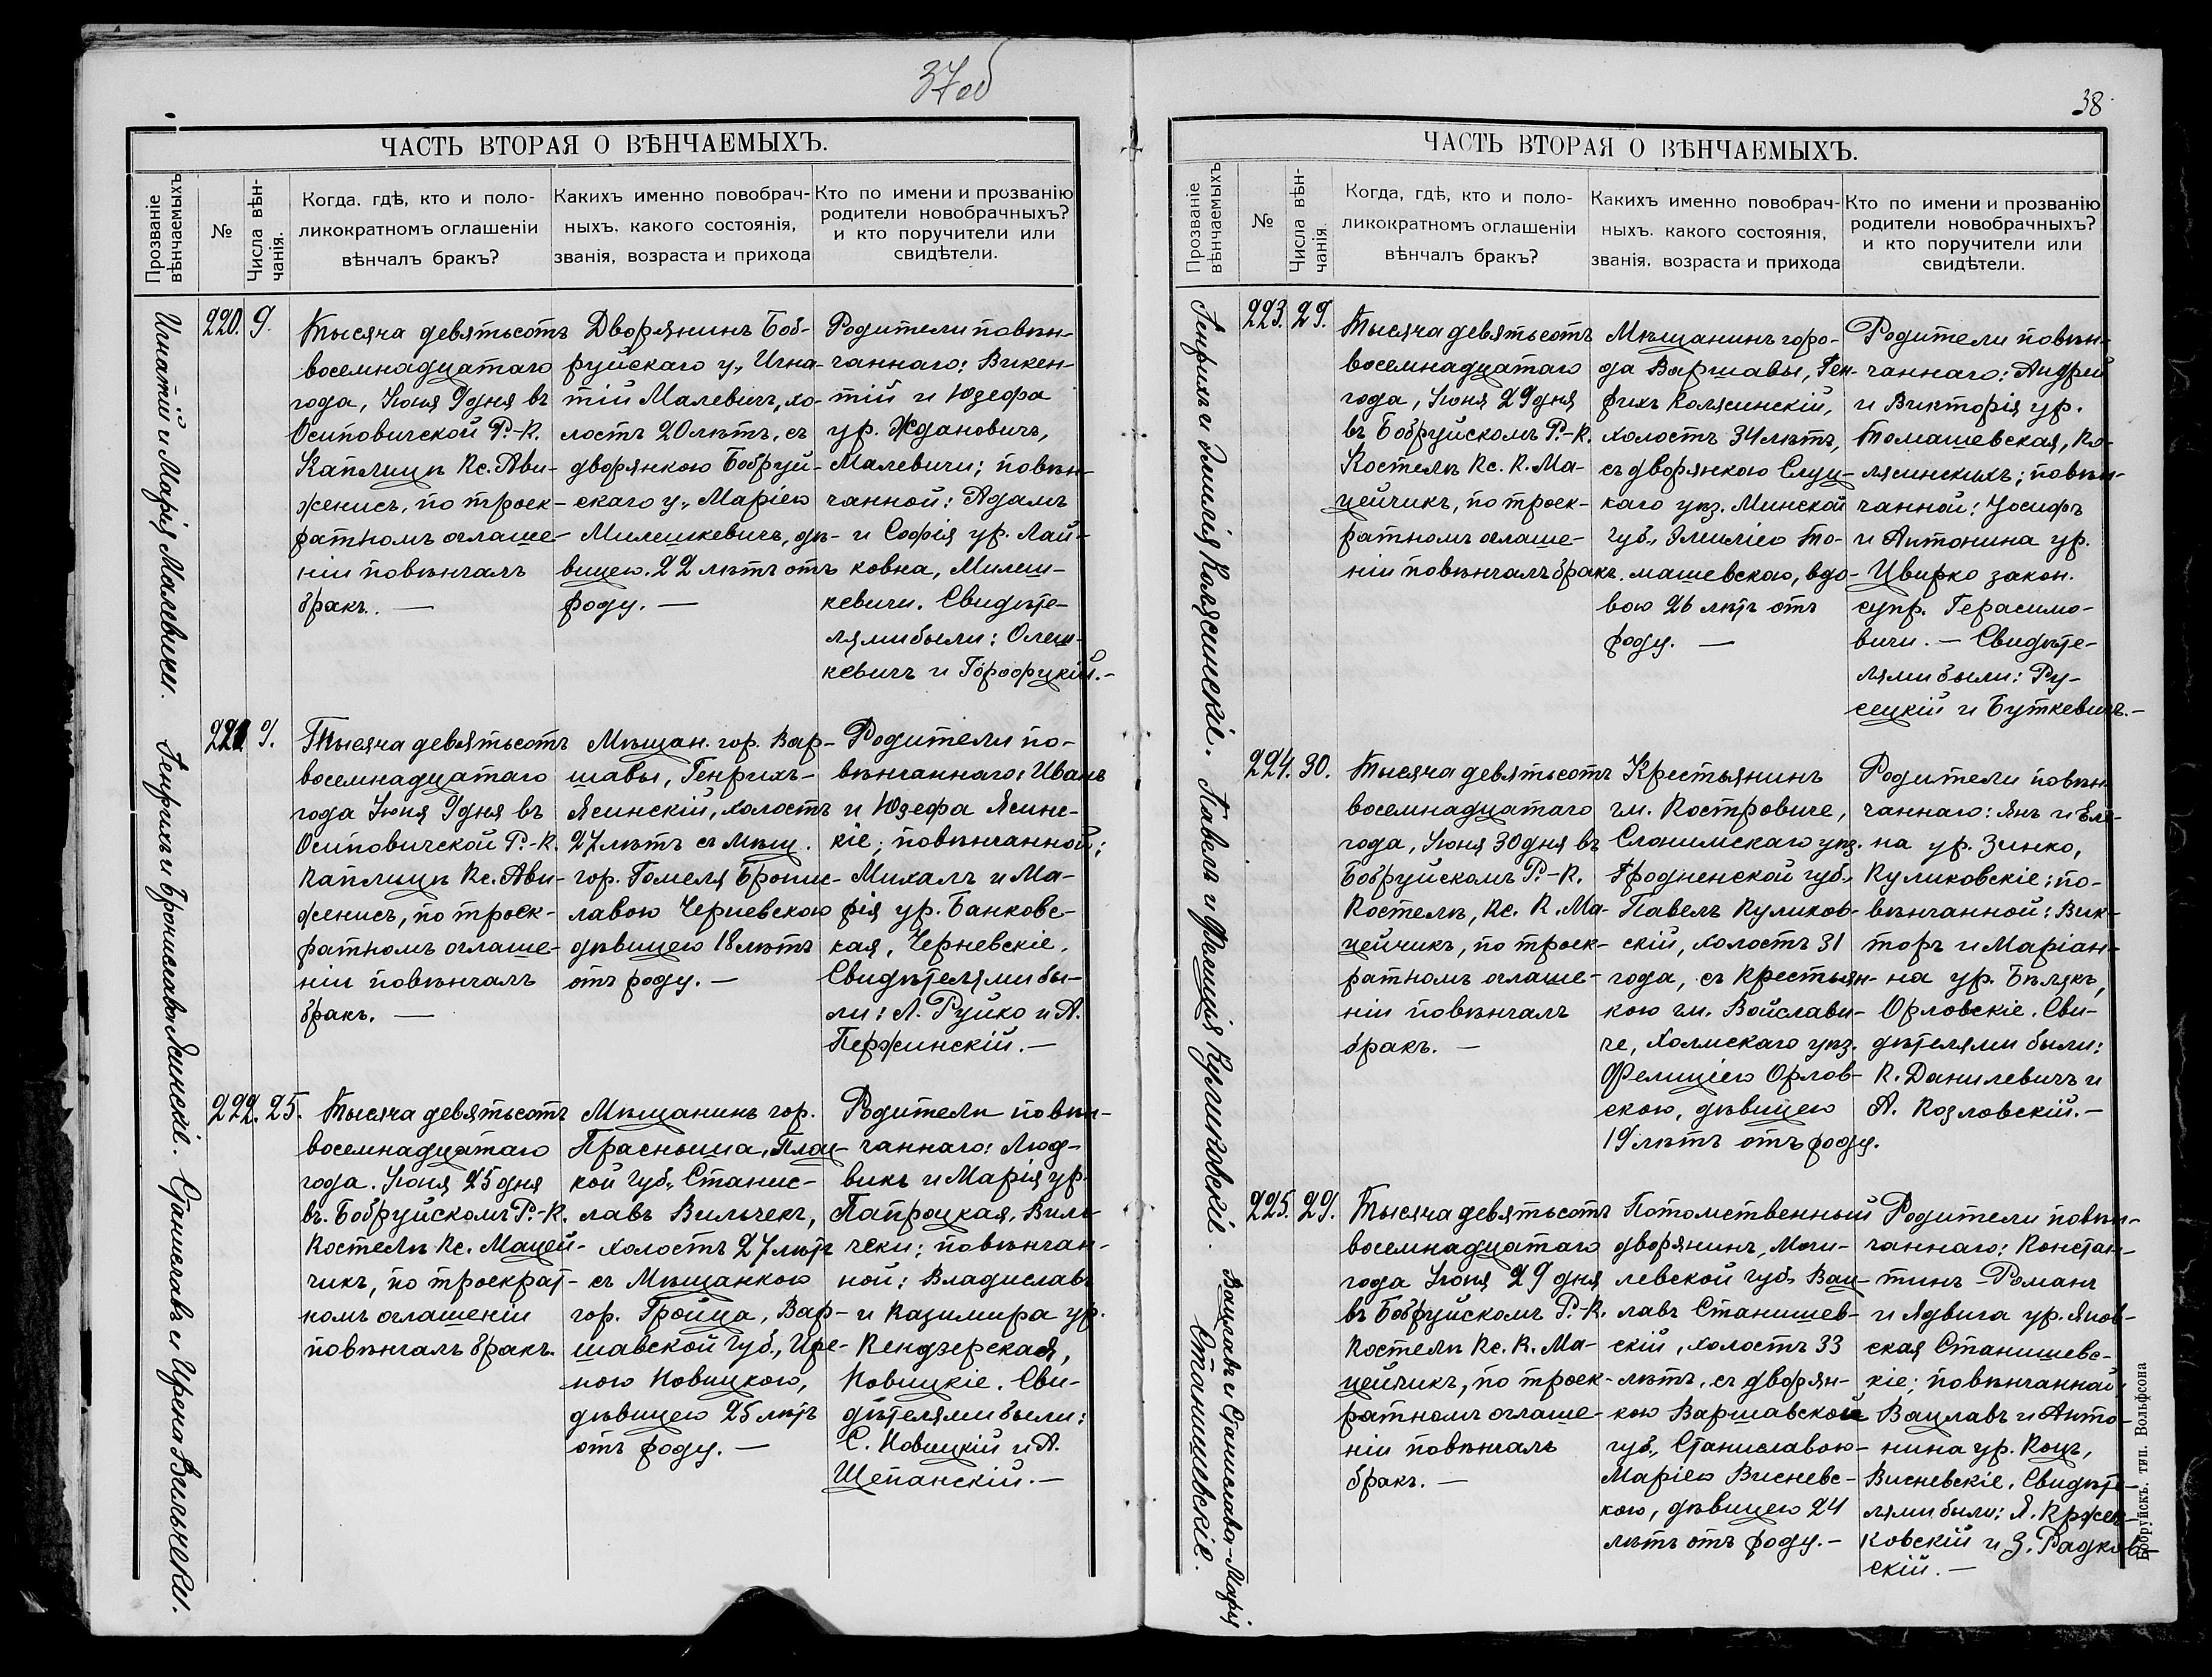 37об
ЧАСТЬ ВТОРАЯ О ВѢНЧАЕМЫХЪ.
Прозваніе вѣнчаемыхъ
№
Числа вѣнчанія.
Когда, гдѣ, кто и поло-
ликократномъ оглашеніи
вѣнчалъ бракъ?
Какихъ именно новобрач-
ныхъ, какого состоянія,
званія, возраста и прихода
Кто по имени и прозванію
родители новобрачныхъ?
и кто поручители или
свидѣтели.
Игнатій и Марія Малевичи.
220.
9.
Тысяча девятьсотъ
восемнадцатаго
года, Іюня 9 дня въ
Осиповичской Р.-К.
Каплицѣ Кс. Ави-
женисъ, по троек-
ратномъ оглаше-
ніи повѣнчалъ
бракъ. —
Дворянинъ Боб-
руйскаго у., Игна-
тій Малевичъ, хо-
лостъ 20 лѣтъ, съ
дворянкою Бобруй-
скаго у., Маріею
Милешкевичъ, дѣ-
вицею. 22 лѣтъ отъ
роду. —
Родители повѣн-
чаннаго: Викен-
тій и Юзефа
ур. Ждановичъ,
Малевичи; повѣн-
чанной: Адамъ
и Софія ур. Лай-
ковна, Милеш-
кевичи. Свидѣте-
лями были: Олеш-
кевичъ и Городецкій. —
Генрихъ и Брониславы Ясинскіе.
221
9.
Тысяча девятьсотъ
восемнадцатаго
года Іюня 9 дня въ
Осиповичской Р.-К.
Каплицѣ Кс. Ави-
женисъ, по троек-
ратномъ оглаше-
ніи повѣнчалъ
бракъ. —
Мѣщан. гор. Вар-
шавы, Генрихъ-
Ясинскій, холостъ
27 лѣтъ съ мѣщ.
гор. Гомеля Бронис-
лавою Черневскою
дѣвицею 18 лѣтъ
отъ роду. —
Родители по-
вѣнчаннаго: Иванъ
и Юзефа Ясинс-
кіе; повѣнчанной:
Михалъ и Ма-
рія ур. Банковс-
кая, Черневскіе.
Свидѣтелями бы-
ли: Л. Руйко и А.
Пержинскій. —
Станиславъ и Ирена Вильчеки.
222.
25.
Тысяча девятьсотъ
восемнадцатаго
года. Іюня 25 дня
въ. Бобруйскомъ Р.-К.
Костелѣ Кс. Мацей-
чикъ, по троекрат-
номъ оглашеніи
повѣнчалъ бракъ.
Мѣщанинъ гор.
Прасныша, Плоц-
кой губ., Станис-
лавъ Вильчекъ,
холостъ 27 лѣтъ
съ Мѣщанкою
гор. Гройца, Вар-
шавской губ., Ире-
ною Новицкою,
дѣвицею 25 лѣтъ
отъ роду. —
Родители повѣн-
чаннаго: Люд-
викъ и Марія ур.
Папроцкая, Виль-
чеки; повѣнчан-
ной: Владиславъ
и Казимира ур.
Кендзерская,
Новицкіе. Сви-
дѣтелями были:
С. Новицкій и А.
Щепанскій. —
38
ЧАСТЬ ВТОРАЯ О ВѢНЧАЕМЫХЪ.
Прозваніе вѣнчаемыхъ
№
Числа вѣнчанія.
Когда, гдѣ, кто и поло-
ликократномъ оглашеніи
вѣнчалъ бракъ?
Какихъ именно новобрач-
ныхъ, какого состоянія,
званія, возраста и прихода
Кто по имени и прозванію
родители новобрачныхъ?
и кто поручители или
свидѣтели.
Генрихъ и Эмилія Колясинскіе.
223.
29.
Тысяча девятьсотъ
восемнадцатаго
года, Іюня 29 дня
въ Бобруйскомъ Р.-К.
Костелѣ Кс. К. Ма-
цейчикъ, по троек-
ратномъ оглаше-
ніи повѣнчалъ бракъ.
Мѣщанинъ горо-
да Варшавы, Ген-
рихъ Колясинскій,
холостъ 34 лѣтъ,
съ дворянкою Слуц-
каго уѣз. Минской
губ., Эмиліею То-
машевскою, вдо-
вою 26 лѣтъ отъ
роду. —
Родители повѣн-
чаннаго: Андрей
и Викторія ур.
Томашевская, Ко-
лясинскихъ; повѣн-
чанной: Іосифъ
и Антонина ур.
Цвирко закон.
супр. Герасимо-
вичи. — Свидѣте-
лями были: Ру-
сецкій и Буткевичъ. —
Павелъ и Фелиція Куликовскіе.
224.
30.
Тысяча девятьсотъ
восемнадцатаго
года, Іюня 30 дня въ
Бобруйскомъ Р.-К.
Костелѣ, Кс. К. Ма-
цейчикъ, по троек-
ратномъ оглаше-
ніи повѣнчалъ
бракъ. —
Крестьянинъ
гм. Костровиче,
Слонимскаго уѣз.
Гродненской губ.,
Павелъ Куликов-
скій, холостъ 31
года, съ крестьян-
кою гм. Войслави-
че, Холмскаго уѣз.
Фелиціею Орлов-
скою, дѣвицею
19 лѣтъ отъ роду.
Родители повѣн-
чаннаго: Янъ и Еле-
на ур. Зинко,
Куликовскіе; по-
вѣнчанной: Вик-
торъ и Маріан-
на ур. Бѣлякъ,
Орловскіе. Сви-
дѣтелями были:
К. Данилевичъ и
А. Козловскій. —
Вацлавъ и Станислава-Марія
Станишевскіе.
225.
29.
Тысяча девятьсотъ
восемнадцатаго
года Іюня 29 дня
въ Бобруйскомъ Р.-К.
Костелѣ Кс. К. Ма-
цейчикъ, по троек-
ратномъ оглаше-
ніи повѣнчалъ
бракъ. —
Потомственный
дворянинъ, Моги-
левской губ. Вац-
лавъ Станишев-
скій, холостъ 33
лѣтъ, съ дворян-
кою Варшавской
губ., Станиславою-
Маріею Висневс-
кою, дѣвицею 24
лѣтъ отъ роду. —
Родители повѣн-
чаннаго: Констан-
тинъ - Романъ
и Ядвига ур. Янов-
ская Станишевс-
кіе; повѣнчанной
Вацлавъ и Анто-
нина ур. Коцъ,
Висневскіе. Свидѣте-
лями были: Я. Кржеч-
ковскій и З. Радков-
скій. —
Бобруйскъ. тип. Вольфсона